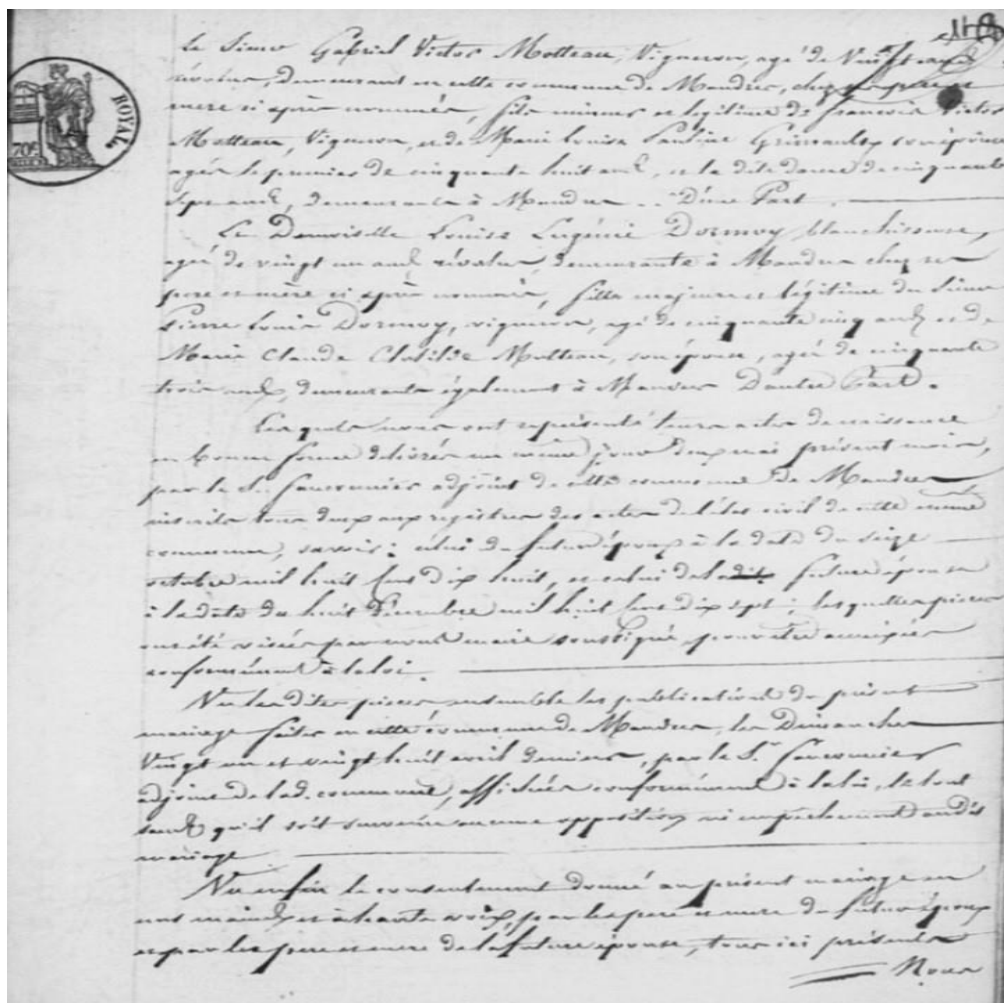 118
ROYAL
70c
Le Sieur Gabriel Victor Motteau, Vigneron, agé de Vingt ans
révolus, demeurant en cette commune de Mandres, chez ses père et
mere ci après nommés, fils mineur et légitime de françois Victor
Motteau, Vigneron, et de Marie Louise Pauline Grimault, son épouse
agés le premier de cinquante huit ans, et la dite dame de cinquante
sept ans, demeurants à Mandres .. D'une Part.
Et Demoiselle Louise Eugénie Dormoy, blanchisseuse,
agée de vingt un ans révolus, demeurante à Mandres chez ses
pere et mère ci après nommés, fille majeure et légitime du Sieur
Pierre Louis Dormoy, vigneron, agé de cinquante cinq ans et de
Marie Claude Clotilde Motteau, son épouse, agée de cinquante
trois ans, demeurants également à Mandres D'autre Part.
Lesquels nous ont représenté leurs actes de naissance
en bonne forme délivrés un même jour deux mai présent mois,
par le Sr. fauconnier adjoint de cette commune de Mandres
inscrits tous deux aux registres des actes de l'état civil de cette même
commune, savoir: celui du futur époux à la date du seize
octobre mil huit cent dix huit, et celui de ladite future épouse
à la date du huit Décembre mil huit cent dix sept; lesquelles pieces
ont été visées par nous maire soussigné, pour être annexées
conformément à la loi.
Vu lesdites pieces ensemble les publications du présent
mariage faites en cette commune de Mandres, les Dimanches
Vingt un et vingt huit avril derniers, par le Sr. fauconnier
adjoint de lad. commune, affichées conformément à la loi, le tout
sans qu'il soit survenu aucune opposition ni empêchement audit
mariage
Vu enfin le consentement donné au présent mariage en
nos mains et à haute voix, par les pere et mere du futur époux
et par les pere et mere de la future épouse, tous ici présents
Nous